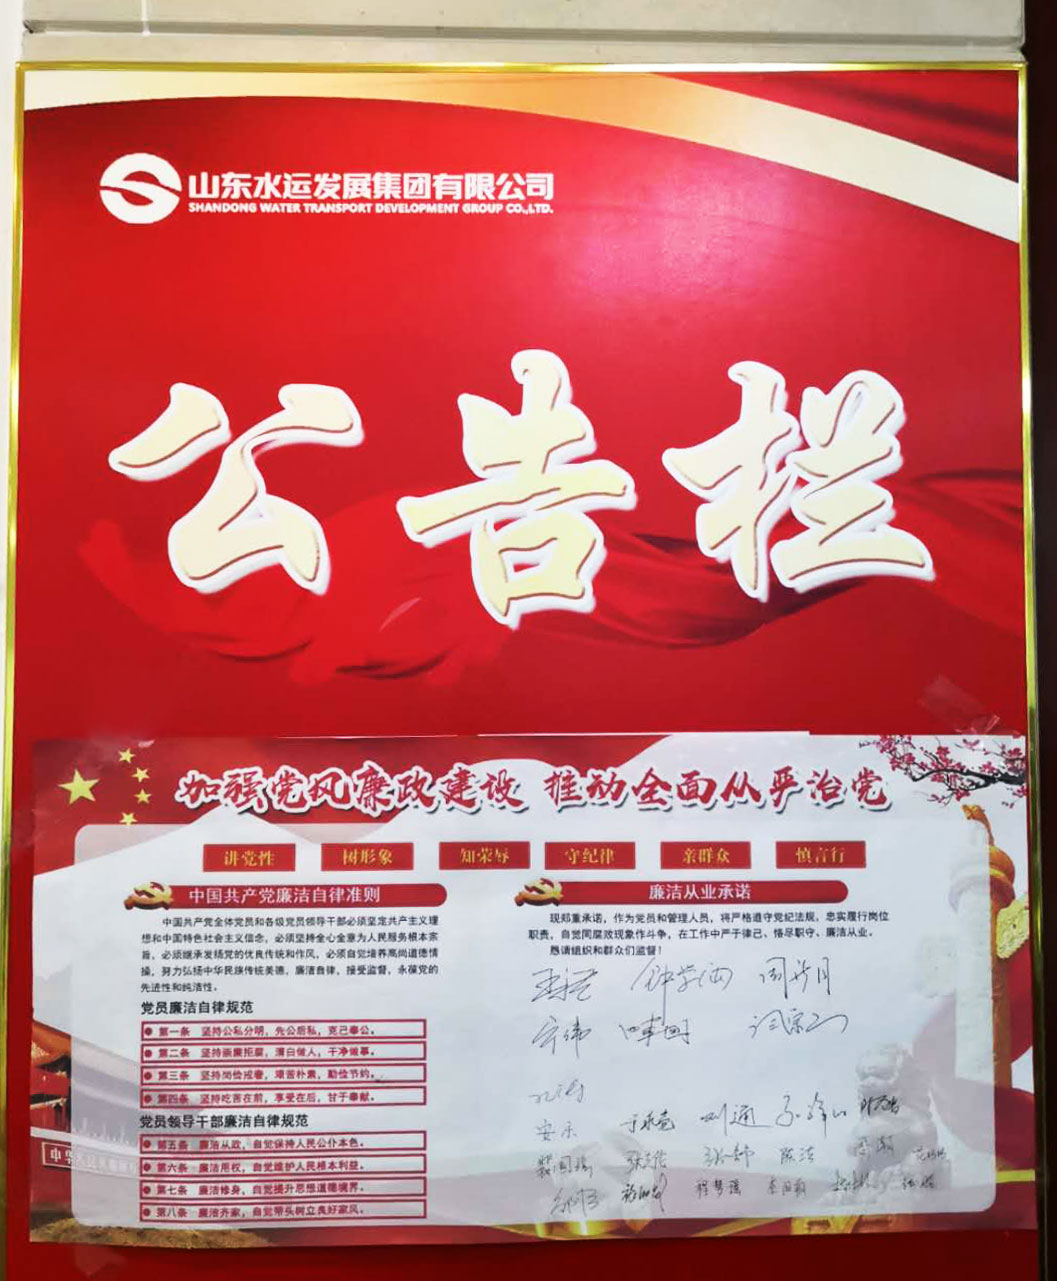 山东水运发展集团有限公司
SHANDONG WATER TRANSPORT DEVELOPMENT GROUP CO.,LTD.
公告栏
加强党风廉政建设 推动全面从严治党
讲党性 树形象 知荣辱 守纪律 亲群众 慎言行
中国共产党廉洁自律准则
中国共产党全体党员和各级党员领导干部必须坚定共产主义理
想和中国特色社会主义信念，必须坚持全心全意为人民服务根本宗
旨，必须继承发扬党的优良传统和作风，必须自觉培养高尚道德情
操，努力弘扬中华民族传统美德，廉洁自律，接受监督，永葆党的
先进性和纯洁性。
党员廉洁自律规范
第一条 坚持公私分明，先公后私，克己奉公。
第二条 坚持崇廉拒腐，清白做人，干净做事。
第三条 坚持尚俭戒奢，艰苦朴素，勤俭节约。
第四条 坚持吃苦在前，享受在后，甘于奉献。
党员领导干部廉洁自律规范
第五条 廉洁从政，自觉保持人民公仆本色。
第六条 廉洁用权，自觉维护人民根本利益。
第七条 廉洁修身，自觉提升思想道德境界。
第八条 廉洁齐家，自觉带头树立良好家风。
廉洁从业承诺
现郑重承诺，作为党员和管理人员，将严格遵守党纪法规，忠实履行岗位
职责，自觉同腐败现象作斗争，在工作中严于律己、恪尽职守、廉洁从业。
恳请组织和群众们监督！
刘通
陈洁
程梦瑶